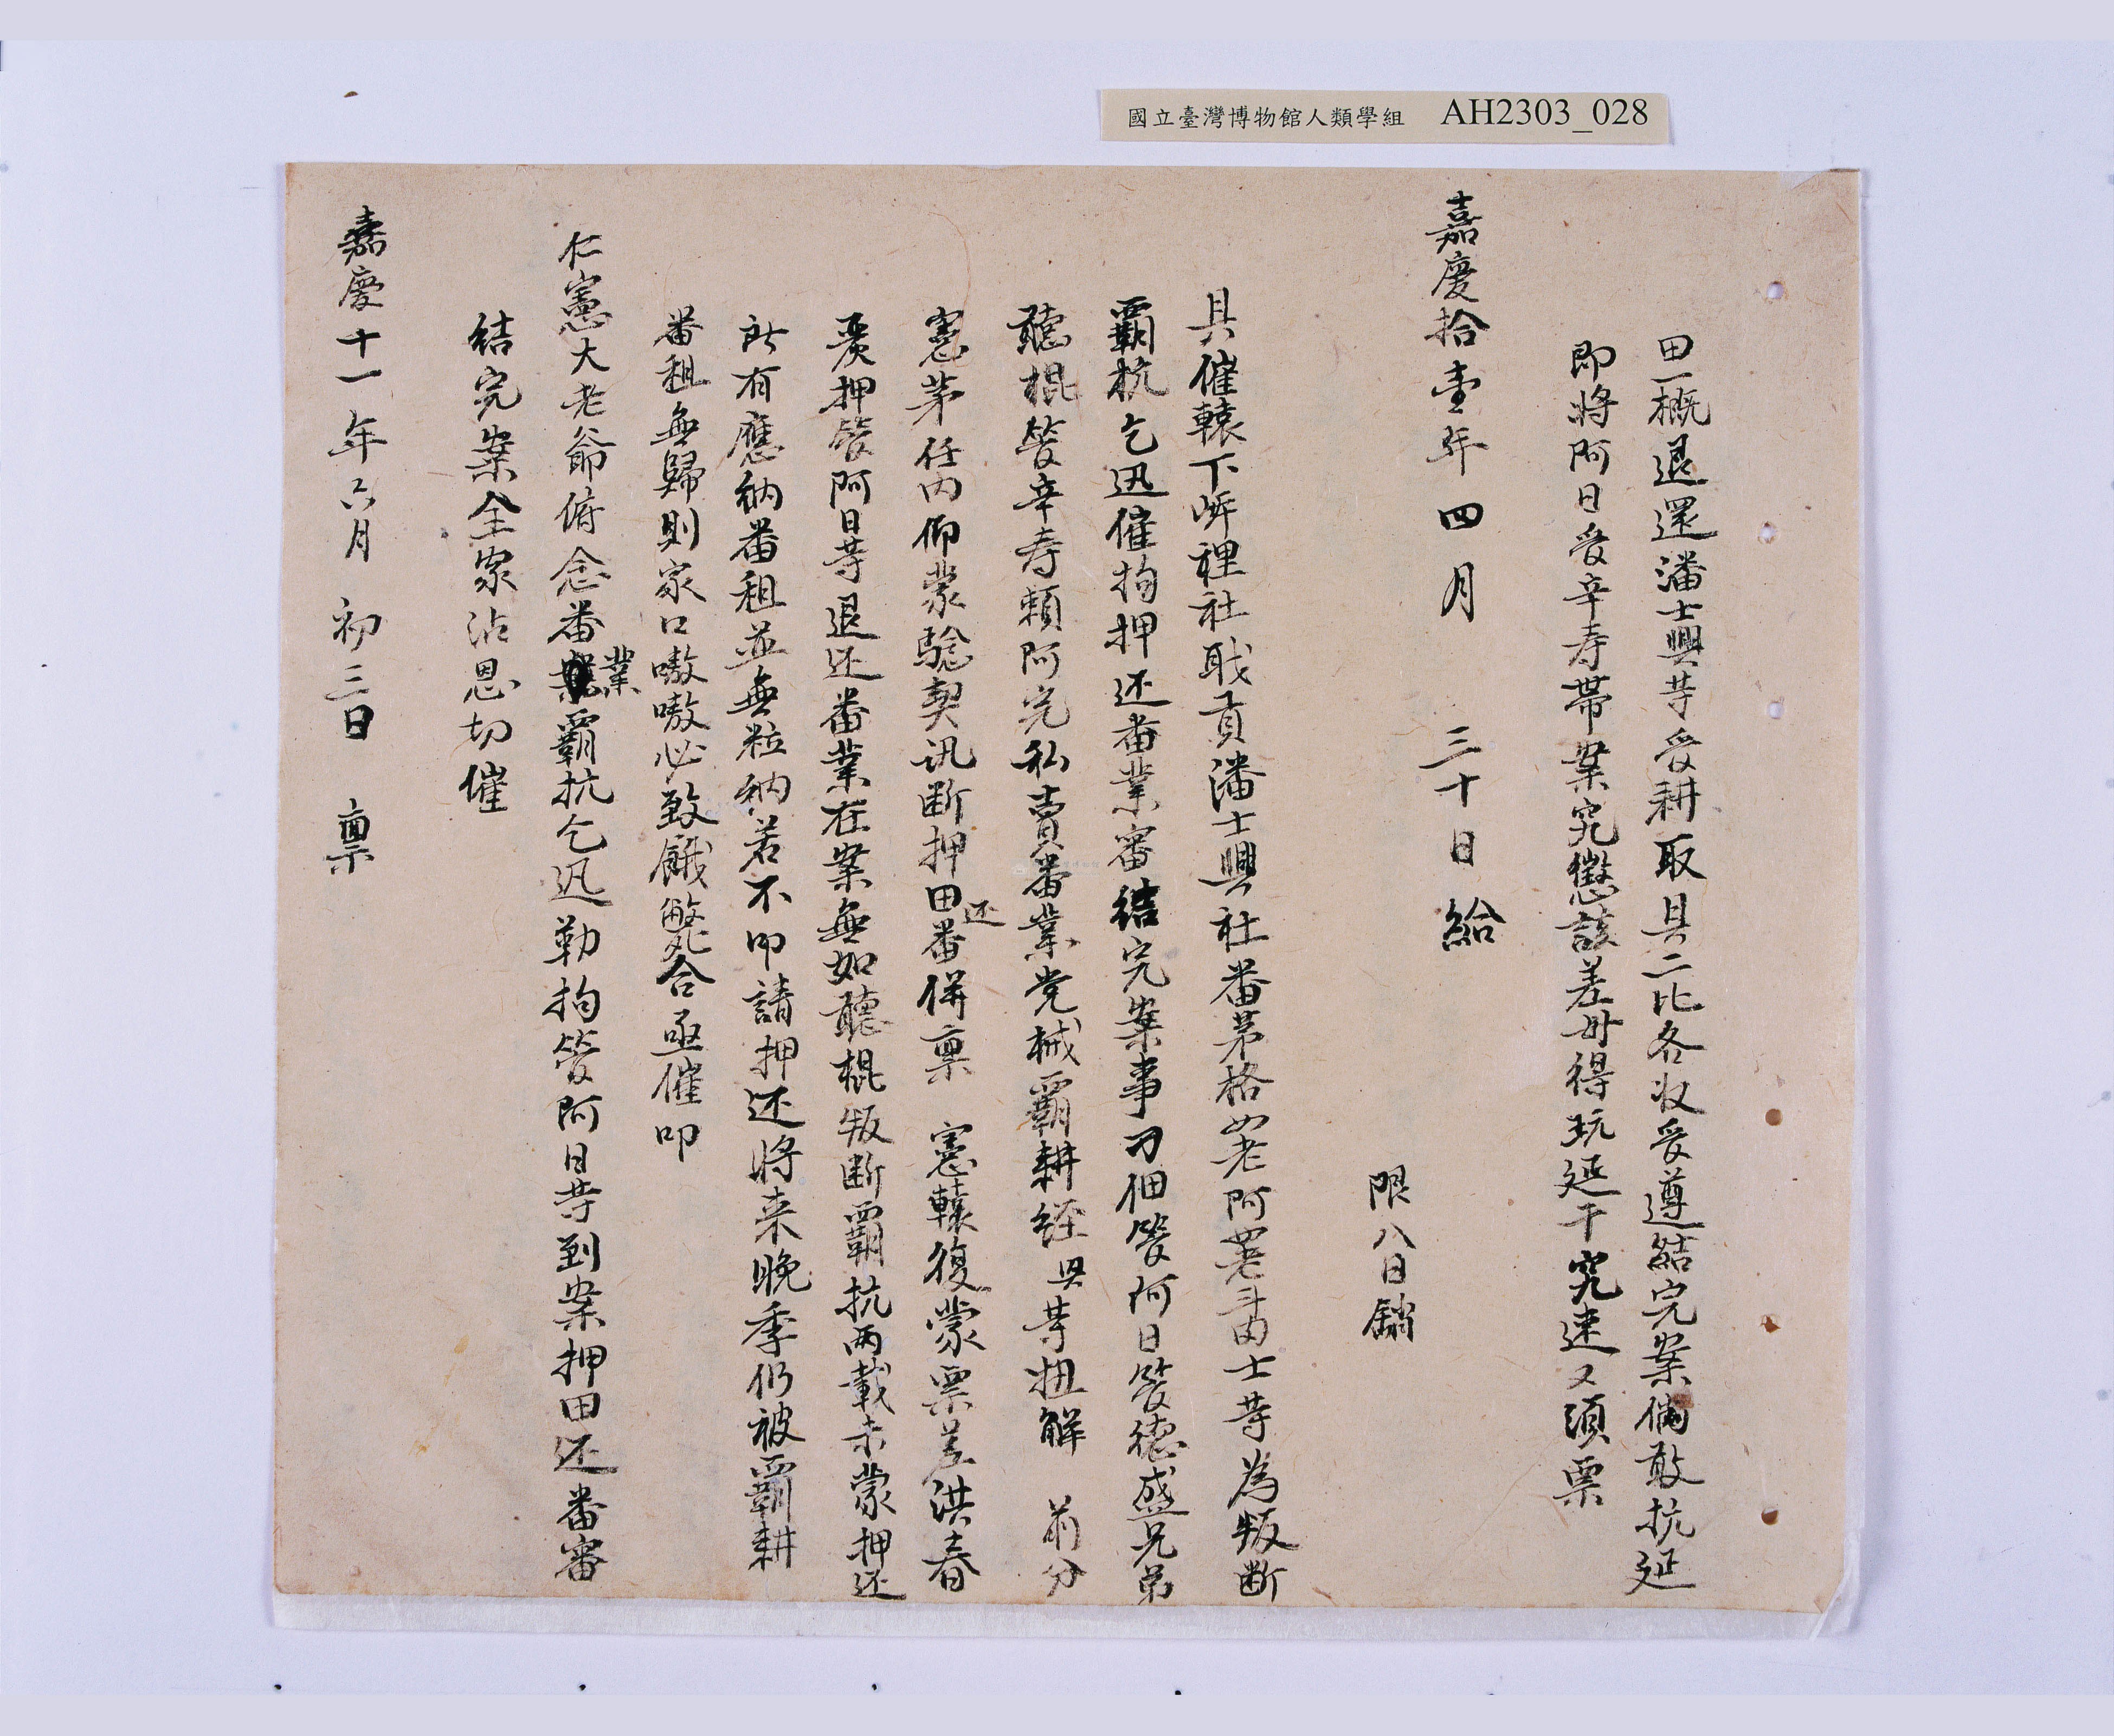 國立臺灣博物館人類學組 AH2303_028
田一概退還潘士興等受耕取具二比各收受遵結完案倘敢抗延
即將阿日受辛寿帶案究懲該差毋得玩延干究速又須票
嘉慶拾壹年四月 三十日給
限八日銷
具催轅下岸裡社職貢潘士興社番茅格四老阿四老斗由士等為叛断
覇抗乞迅催拘押还番業審結完案事刁佃管阿日管德盛兄弟
聽棍管辛寿賴阿完私賣番業党械覇耕経興等扭觧 前分
憲茅任内仰蒙驗契訊断押田还番併稟 憲轅復蒙票差洪春
覆押管阿日等退还番業在案無如聽棍叛断覇抗两載未蒙押还
所有應納番租並無粒納若不叩請押还將来晚季仍被覇耕
番租無歸則家口嗷嗷必致餓斃合亟催叩
仁憲大老爺俯念番業覇抗乞迅勒拘管阿日等到案押田还番審
結完案全家沾恩切催
嘉慶十一年六月 初三日 稟